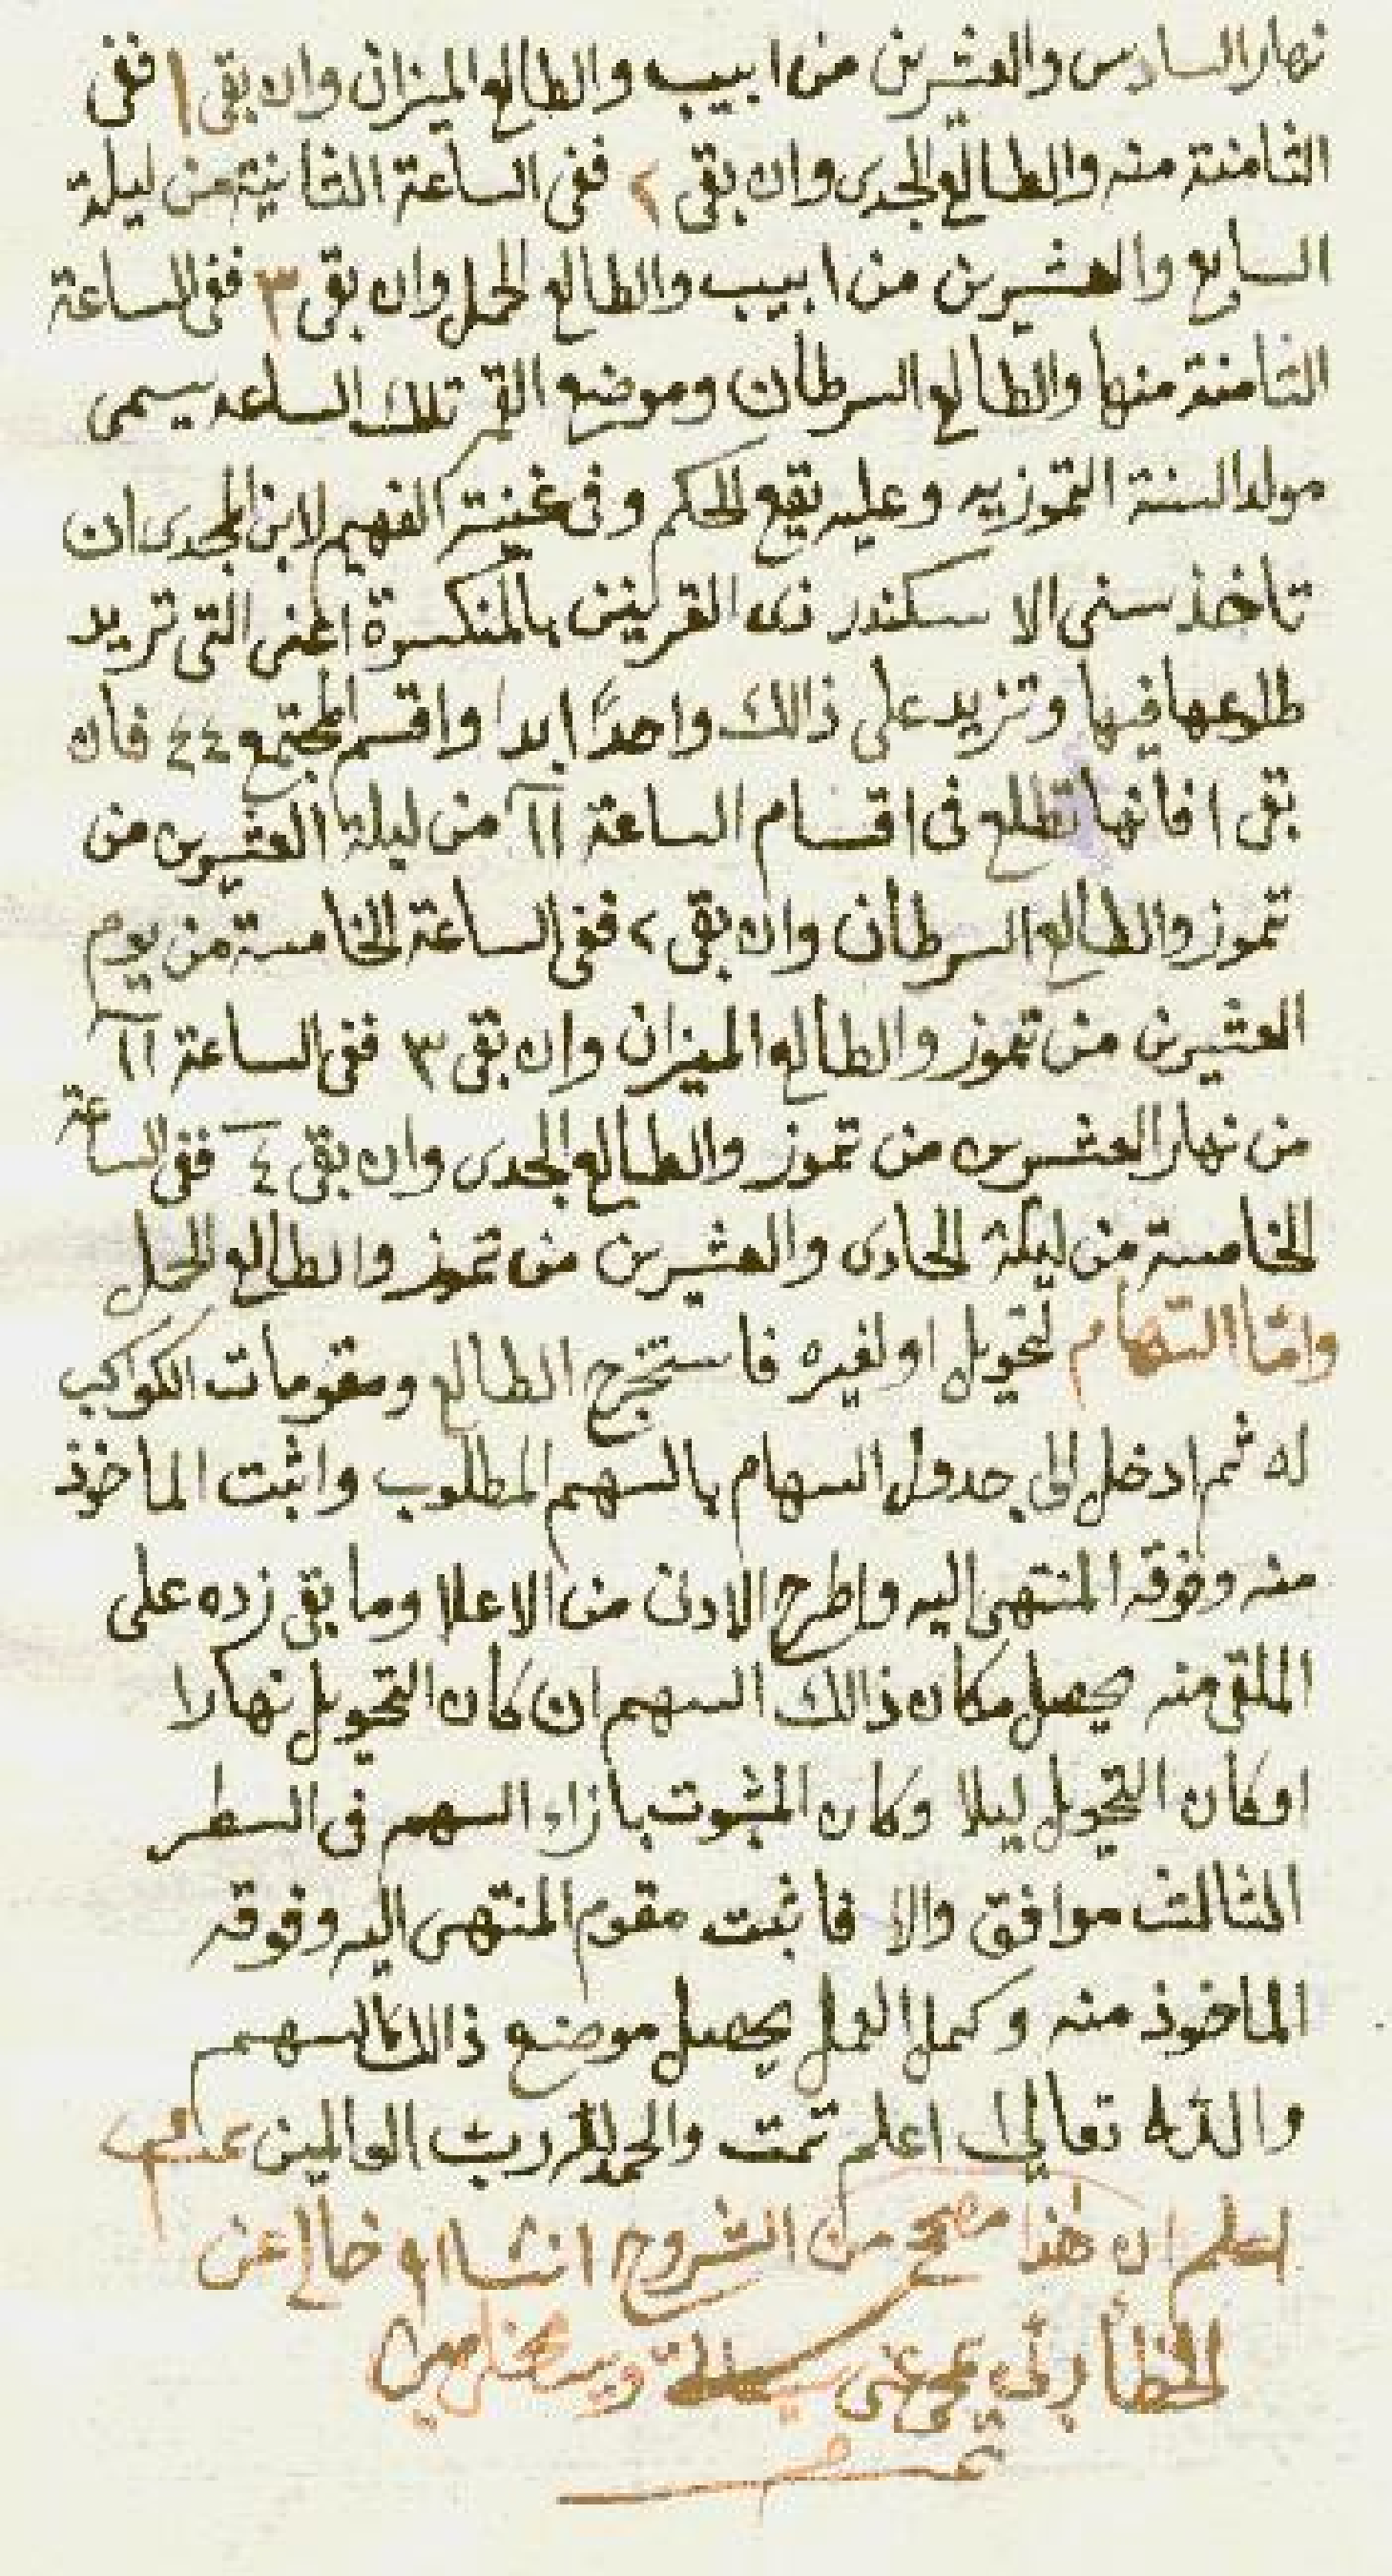 نهار السادس والعشرين من ابيب والطالع الميزان وان بقى ١ ففى
الثامنة منه والطالع الجدى وان بقى ٢ ففى الساعة الثانية من ليلة
السابع والعشرين من ابيب والطالع الحمل وان بقى ٣ ففى الساعة
الثامنة منها والطالع السرطان وموضع القمر تلك الساعه يسمى
مولد السنة التموزيه وعليه تقع الحكم وفى غنية الفهيم لابن المجدى ان
تاخذ سنى الاسكندر ذى القرنين بالمنكسرة اعنى التى تريد
طلوعها فيها وتزيد على ذالك واحدًا ابدا واقسم المجتمع ٤٤ فان
بقى ١ فانها تطلع فى اقسام الساعة ١١ من ليلة العشرين من
تموز والطالع السرطان وان بقى ٢ ففى الساعة الخامسة من يوم
العشرين من تموز والطالع الميزان وان بقى ٣ ففى الساعة ١١
من نهار العشرين من تموز والطالع الجدى وان بقى ٤ ففى الساعة
الخامسة من ليلة الحادى والعشرين من تموز والطالع الحمل
وامّا السّهام لتحويل او لغيره فاستخرج الطالع ومقومات الكواكب
له ثم ادخل الى جدول السهام بالسهم المطلوب واثبت الماخوذ
منه وفوقه المنتهى اليه واطرح الادنى من الاعلا وما بقى زده على
الملقى منه يحصل مكان ذالك السهم ان كان التحويل نهارا
او كان التحويل ليلا وكان المثبوت بازاء السهم فى السطر
الثالث موافق والا فاثبت مقوم المنتهى اليه وفوقه
الماخوذ منه وكمل العمل يحصل موضع ذالك السهم
والله تعالى اعلم تمت والحمد لله رب العالمين
اعلم ان هذا مصحح من الشروح انشاا خالى عن
الخطأ
تمت